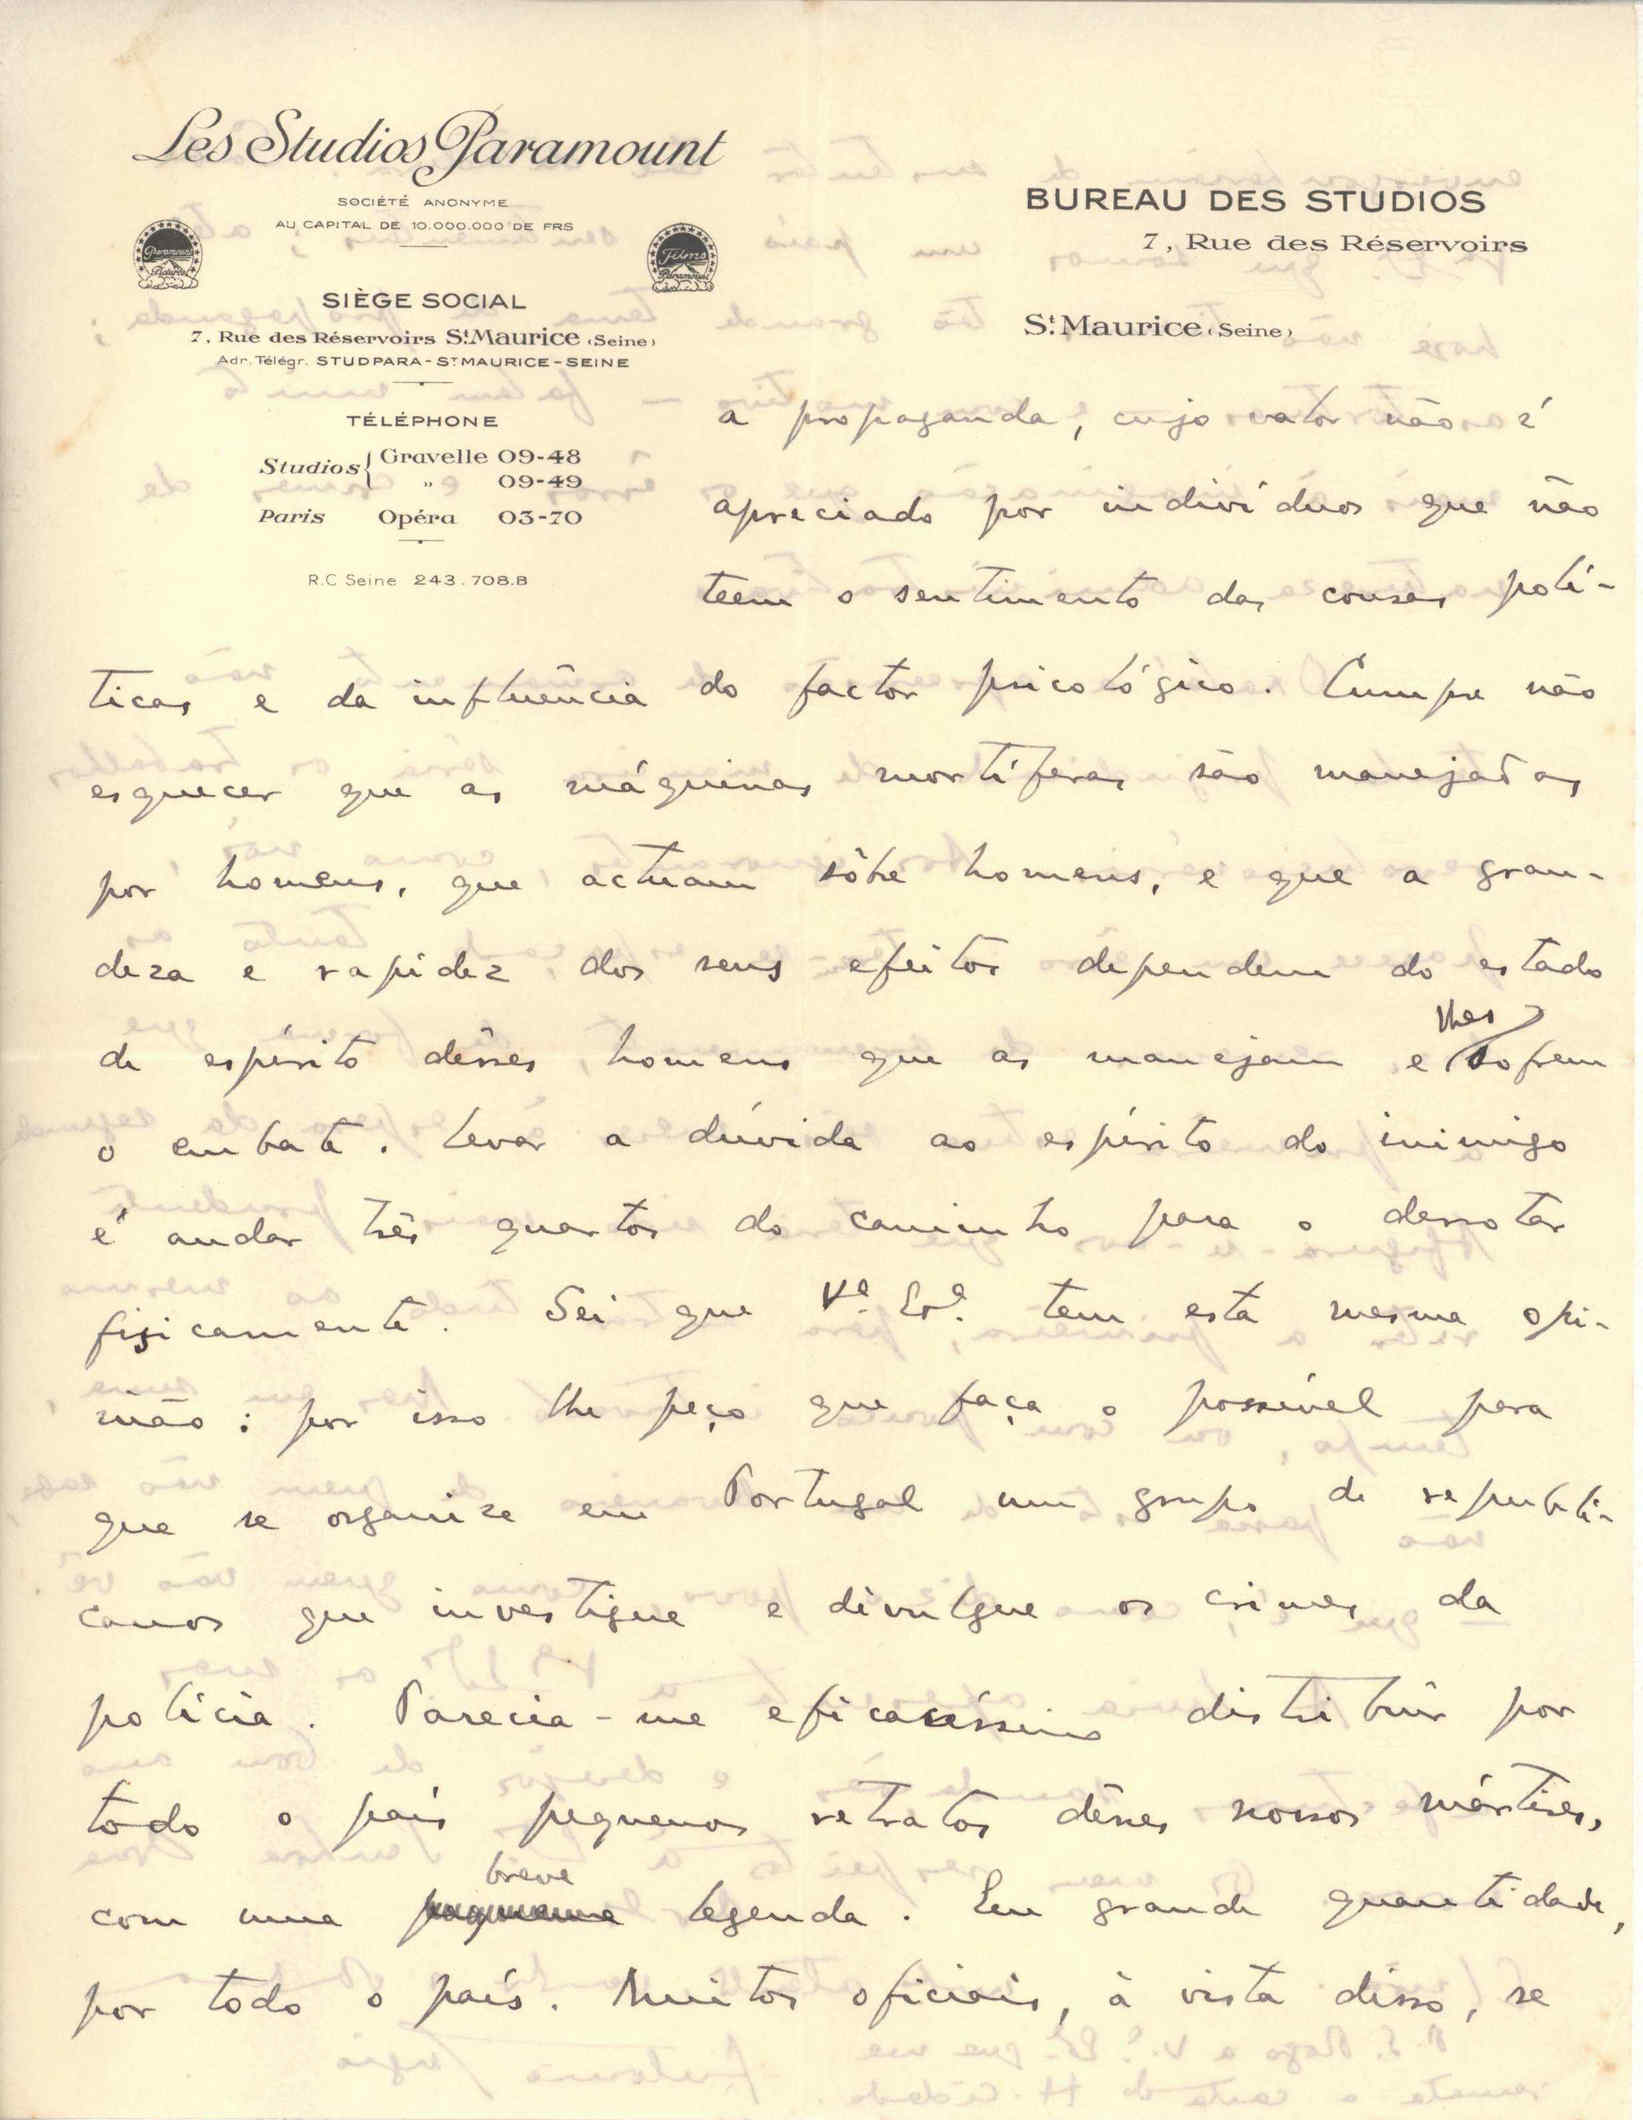 Les Studios Paramount
SOCIÉTÉ ANONYME
AU CAPITAL DE 10.000.000 DE FRS
Paramount Pictures
Films Paramount
SIÈGE SOCIAL
7, Rue des Réservoirs St. Maurice (Seine)
Adr. Télégr. STUDPARA-ST MAURICE-SEINE
TÉLÉPHONE
Studios { Gravelle 09-48
„ 09-49
Paris Opéra 03-70
R.C Seine 243.708.B
BUREAU DES STUDIOS
7, Rue des Réservoirs
St. Maurice (Seine)
a propaganda, cujo valor não é
apreciado por indivíduos que não
teem o sentimento das cousas polí-
ticas e da influência do factor psicológico. Cumpre não
esquecer que as máquinas mortíferas são manejadas
por homens, que actuam sôbre homens, e que a gran-
deza e rapidez dos seus efeitos dependem do estado
de espírito dêsses homens que as manejam e lhes sofrem
o embate. Levar a dúvida ao espírito do inimigo
é andar três quartos do caminho para o derrotar
fisicamente. Sei que V.ª Ex.ª tem esta mesma opi-
nião: por isso lhe peço que faça o possível para
que se organize em Portugal um grupo de republi-
canos que investigue e divulgue os crimes da
polícia. Parecia-me eficacíssimo distribuír por
todo o país pequenos retratos dêsses nossos mártires,
com uma pequena breve legenda. Em grande quantidade,
por todo o país. Muitos oficiais, à vista disso, se